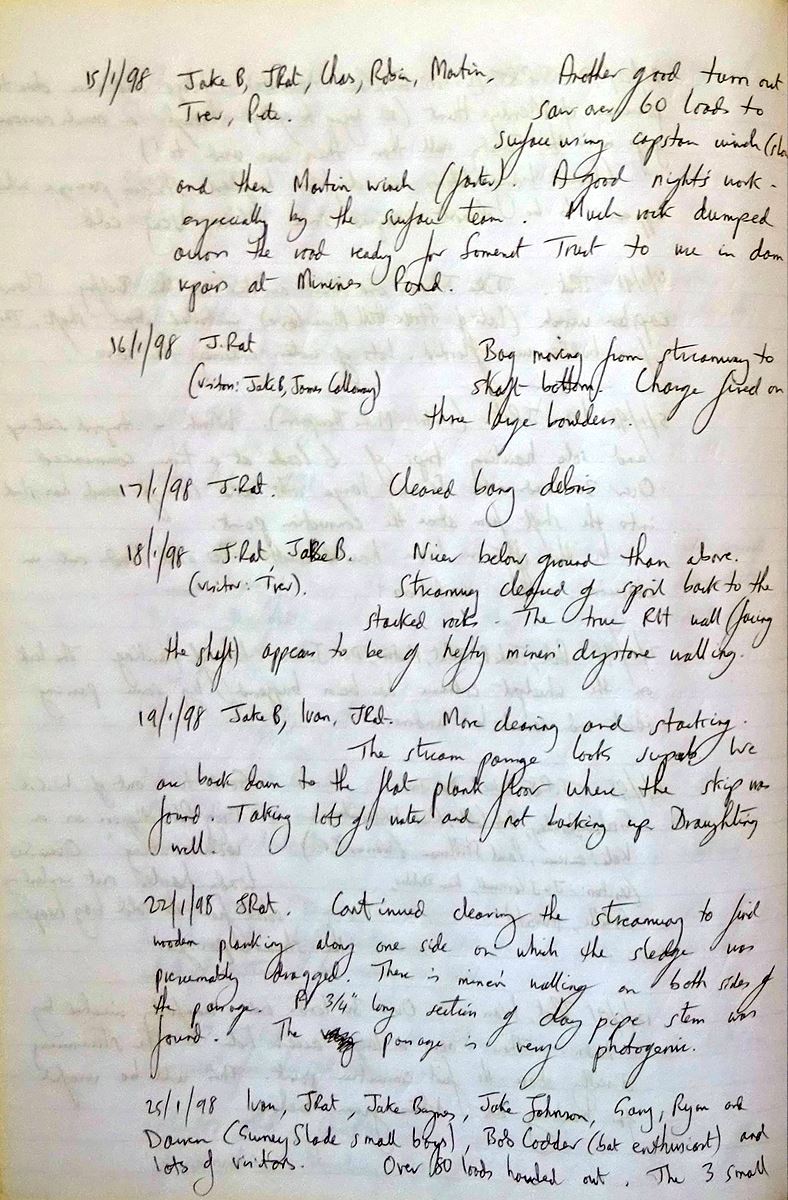 15/1/98 Jake B, JRat, Chas, Robin, Martin, Another good turn out
Trev, Pete. saw over 60 loads to
surface using capstan winch (slow
and then Martin winch (faster). A good night's work -
especially by the surface team. Much rock dumped
across the road ready for Somerset Trust to use in dam
repairs at Mineries Pond.
16/1/98 J.Rat Bag moving from streamway to
(visitors: Jake B, James Calloway) shaft bottom. Charge fired on
three large boulders.
17/1/98 J.Rat. Cleared bang debris
18/1/98 J.Rat, Jake B. Nicer below ground than above.
(visitor: Trev). Streamway cleared of spoil back to the
stacked rocks. The true RH wall (facing
the shaft) appears to be of hefty miners' drystone walling.
19/1/98 Jake B, Ivan, JRat. More clearing and stacking.
The stream passage looks superb. We
are back down to the flat plank floor where the skip was
found. Taking lots of water and not backing up. Draughting
well.
22/1/98 JRat. Continued clearing the streamway to find
wooden planking along one side on which the sledge was
presumably dragged. There is miners' walling on both sides of
the passage. A 3/4" long section of clay pipe stem was
found. The passage is very photogenic.
25/1/98 Ivan, JRat, Jake Baynes, Jake Johnson, Gary, Ryan and
Darren (Gurney Slade small boys), Bob Codder (bat enthusiast) and
lots of visitors. Over 80 loads hauled out. The 3 small